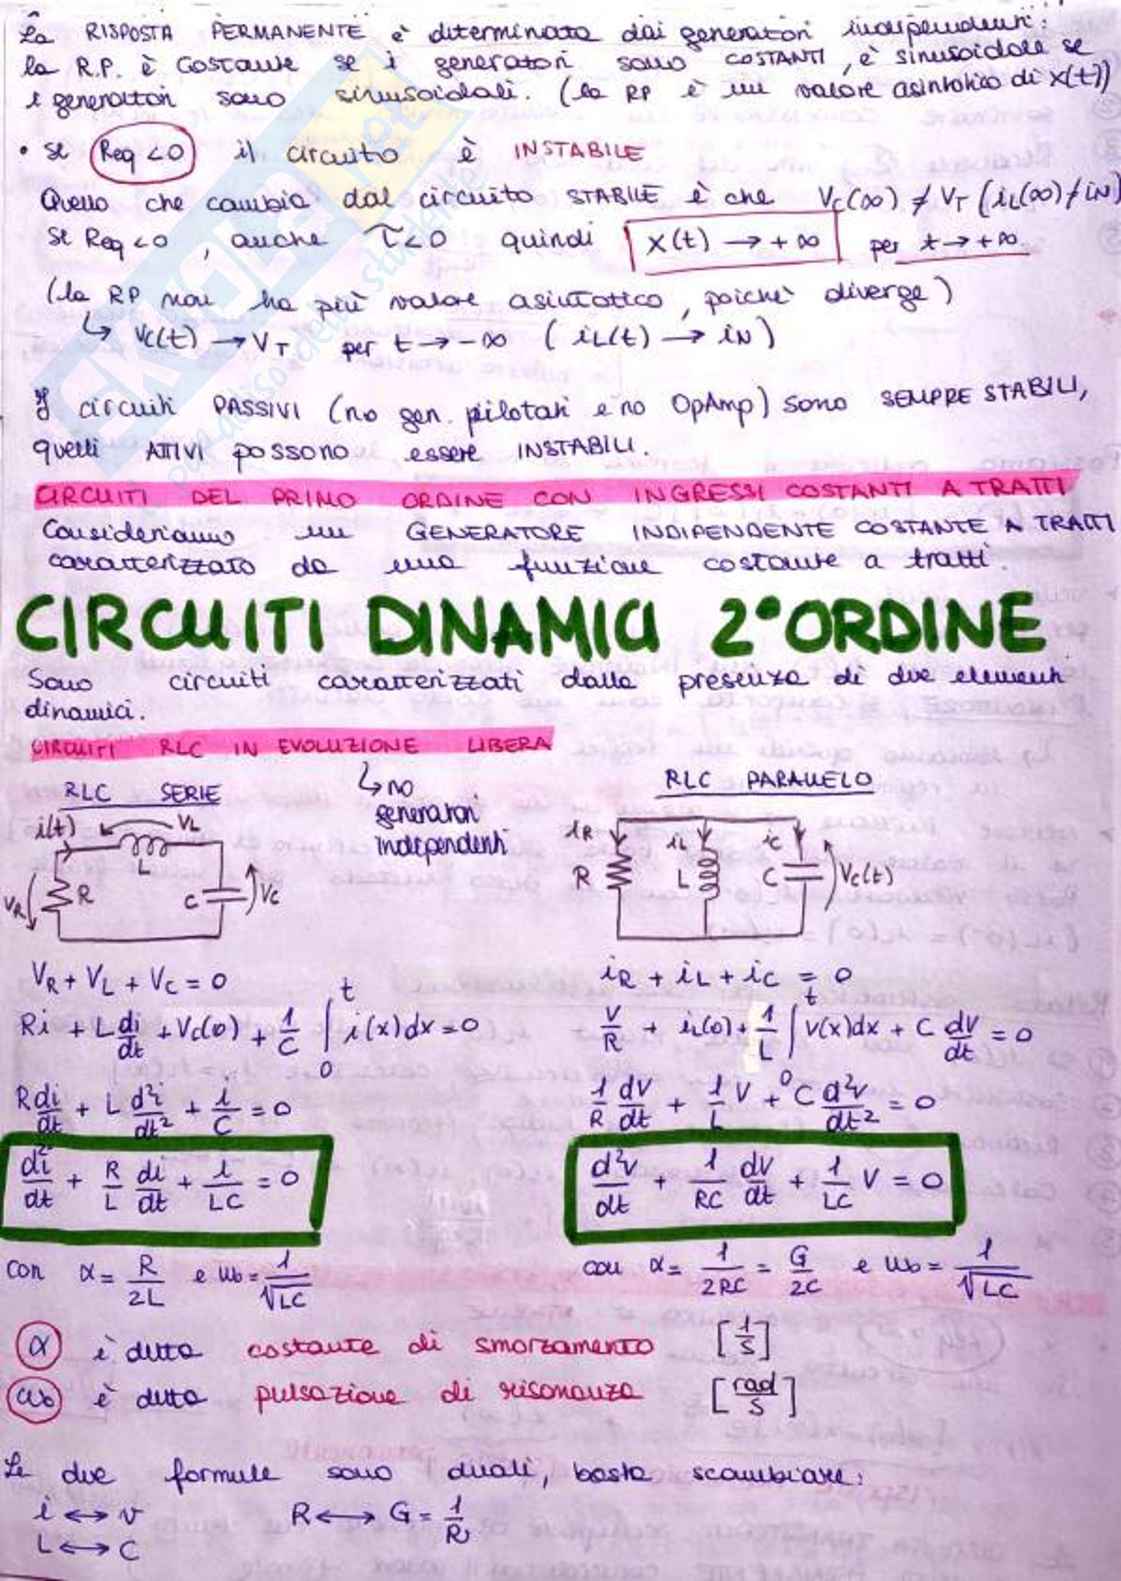 La RISPOSTA PERMANENTE è determinata dai generatori indipendenti:
la R.P. è costante se i generatori sono COSTANTI, è sinusoidale se
i generatori sono sinusoidali. (la RP è un valore asintotico di x(t))
• se Req <0 il circuito è INSTABILE
Quello che cambia dal circuito STABILE è che Vc(∞) ≠ VT (iL(∞) ≠ iN)
se Req <0, anche τ<0 quindi x(t) → +∞ per t→+∞
(la RP non ha più valore asintotico, poichè diverge)
↳ Vc(t) → VT per t→-∞ (iL(t) → iN)
I circuiti PASSIVI (no gen. pilotati e no OpAmp) sono SEMPRE STABILI,
quelli ATTIVI possono essere INSTABILI.
CIRCUITI DEL PRIMO ORDINE CON INGRESSI COSTANTI A TRATTI
Consideriamo un GENERATORE INDIPENDENTE COSTANTE A TRATTI
caratterizzato da una funzione costante a tratti.
CIRCUITI DINAMICI 2° ORDINE
Sono circuiti caratterizzati dalla presenza di due elementi
dinamici.
CIRCUITI RLC IN EVOLUZIONE LIBERA
↳ no
generatori
indipendenti
RLC SERIE
i(t) VL
L
VR R C Vc
RLC PARALLELO
iR iL iC
R L C Vc(t)
VR + VL + VC = 0
Ri + L di/dt + Vc(0) + 1/C ∫₀ᵗ i(x)dx = 0
R di/dt + L d²i/dt² + i/C = 0
d²i/dt + R/L di/dt + i/LC = 0
con α = R/2L e ω₀ = 1/√LC
iR + iL + iC = 0
V/R + iL(0) + 1/L ∫₀ᵗ v(x)dx + C dv/dt = 0
1/R dv/dt + 1/L V + C d²v/dt² = 0
d²v/dt + 1/RC dv/dt + 1/LC V = 0
con α = 1/2RC = G/2C e ω₀ = 1/√LC
α è detta costante di smorzamento [1/s]
ω₀ è detta pulsazione di risonanza [rad/s]
Le due formule sono duali, basta scambiare:
i ↔ v R ↔ G = 1/R
L ↔ C